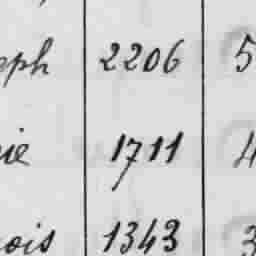 eph 2206 5
ie 1711 4
ois 1343 3